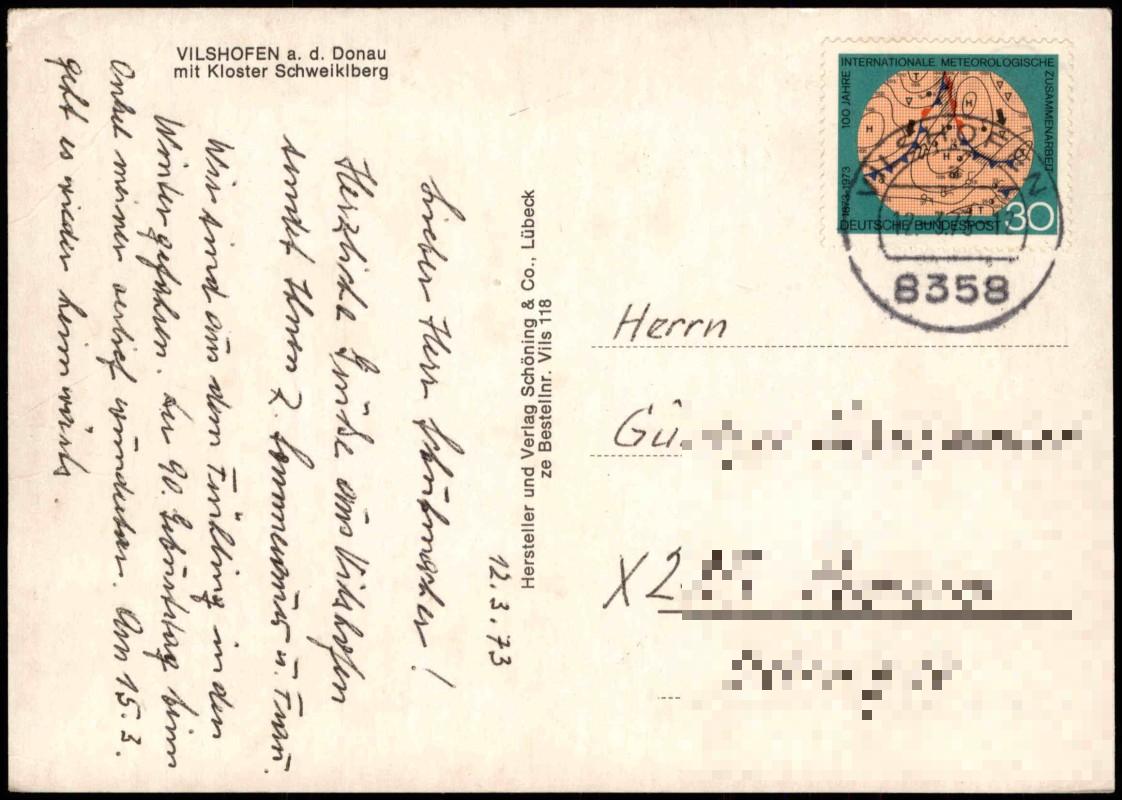 VILSHOFEN a. d. Donau
mit Kloster Schweiklberg
12.3.73
Lieber Herr
Herzliche Grüße aus Vilshofen
sendet Ihnen u. Frau.
Wir sind aus dem Frühling in den
Winter gefahren. Der 90. Geburtstag beim
Onkel meiner verlief wunderbar. Am 15.3.
geht es wieder heimwärts.
Hersteller und Verlag Schöning & Co., Lübeck
ze Bestellnr. Vils 118
100 JAHRE INTERNATIONALE METEOROLOGISCHE ZUSAMMENARBEIT
1873-1973
DEUTSCHE BUNDESPOST 30
8358
Herrn
Gü
X2